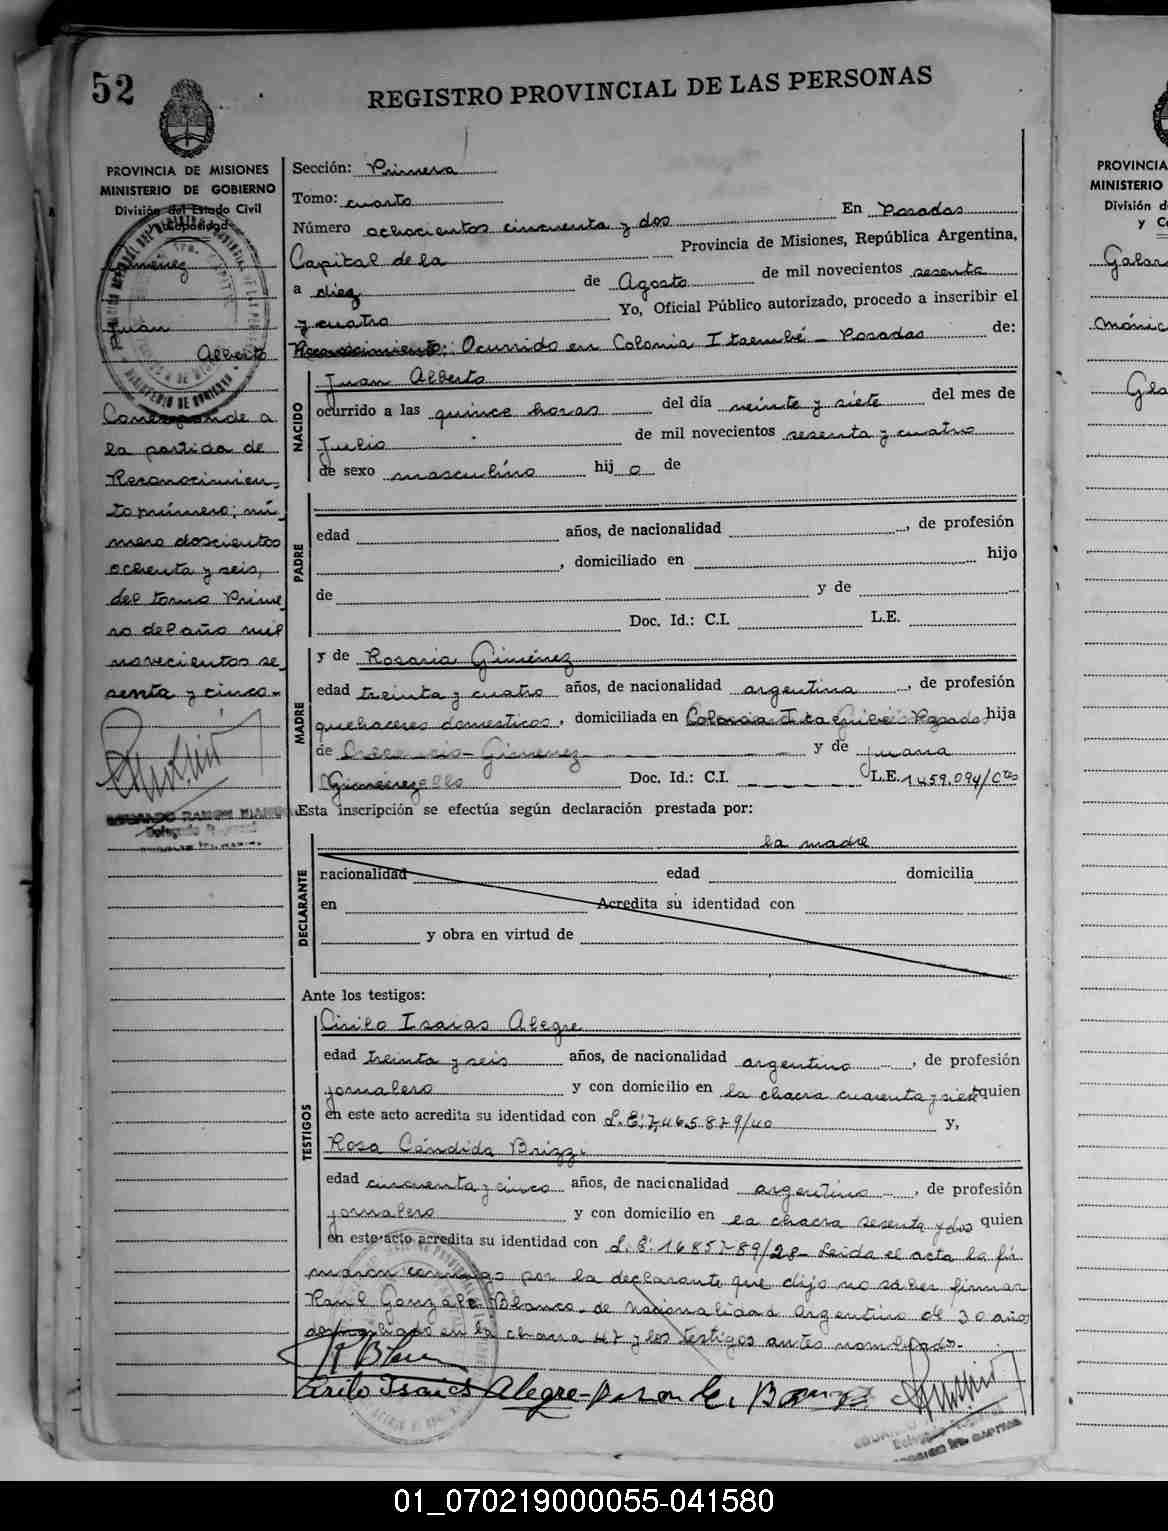 52
REGISTRO PROVINCIAL DE LAS PERSONAS
PROVINCIA DE MISIONES
MINISTERIO DE GOBIERNO
División del Estado Civil
y Capacidad
Gimenez
Juan
Alberto
Corresponde a
la partida de
Reconocimien-
to primero; nú-
mero doscientos
ochenta y seis,
del tomo Prime-
ro del año mil
novecientos se-
senta y cinco-
Sección: Primera
Tomo: cuarto
Número ochocientos cincuenta y dos En Posadas
Capital de la Provincia de Misiones, República Argentina,
a diez de Agosto de mil novecientos sesenta
y cuatro Yo, Oficial Público autorizado, procedo a inscribir el
Reconocimiento: Ocurrido en Colonia Itaembé - Posadas de:
NACIDO
Juan Alberto
ocurrido a las quince horas del día veinte y siete del mes de
Julio de mil novecientos sesenta y cuatro
de sexo masculino hijo de
PADRE
edad años, de nacionalidad , de profesión
, domiciliado en hijo
de y de
Doc. Id.: C.I. L.E.
MADRE
y de Rosaria Giménez
edad treinta y cuatro años, de nacionalidad argentina , de profesión
quehaceres domesticos, domiciliada en Colonia Posadas hija
de Gimenez y de Juana
Doc. Id.: C.I. L.E. 1459.094/
Esta inscripción se efectúa según declaración prestada por:
la madre
DECLARANTE
nacionalidad edad domicilia
en Acredita su identidad con
y obra en virtud de
Ante los testigos:
TESTIGOS
Cirilo Isaias Alegre
edad treinta y seis años, de nacionalidad argentino , de profesión
jornalero y con domicilio en la chacra cuarenta y siete quien
en este acto acredita su identidad con L.E. 7.465.879/40 y,
Rosa Cándida Brizzi
edad cincuenta y cinco años, de nacionalidad argentino , de profesión
jornalero y con domicilio en la chacra sesenta y dos quien
en este acto acredita su identidad con L.E. 1685789/28- Leida el acta la fir
maron conmigo por la declarante que dijo no saber firmar
Raúl González Blanco de nacionalidad argentino de 30 años
domiciliado en la chacra 47 y los testigos antes nombrados.-
Cirilo Isaias Alegre
PROVINCIA
MINISTERIO
División d
y C
Mónic
Gla
01_070219000055-041580